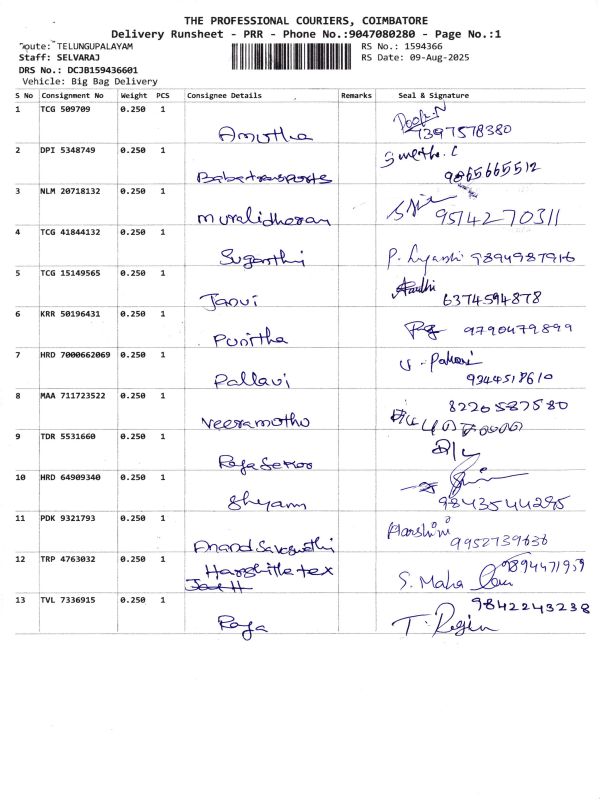 THE PROFESSIONAL COURIERS, COIMBATORE
Delivery Runsheet - PRR - Phone No.:9047080280 - Page No.:1
Route: TELUNGUPALAYAM RS No.: 1594366
Staff: SELVARAJ RS Date: 09-Aug-2025
DRS No.: DCJB159436601
Vehicle: Big Bag Delivery
S No Consignment No Weight PCS Consignee Details Remarks Seal & Signature
1 TCG 509709 0.250 1
Amutha 7397578380
2 DPI 5348749 0.250 1
Baba transports 9865665512
3 NLM 20718132 0.250 1
Muralidharan 9514270311
4 TCG 41844132 0.250 1
Suganthi 9894987916
5 TCG 15149565 0.250 1
Janvi 6374594878
6 KRR 50196431 0.250 1
Punitha 9790479899
7 HRD 7000662069 0.250 1
Pallavi 9344518610
8 MAA 711723522 0.250 1 8220587580
Veeramothu
9 TDR 5531660 0.250 1
10 HRD 64909340 0.250 1
Shyam 9843544285
11 PDK 9321793 0.250 1 Harshini
9952739636
12 TRP 4763032 0.250 1 9894471959
S. Maha
13 TVL 7336915 0.250 1 9842243238
Raja T. Regin